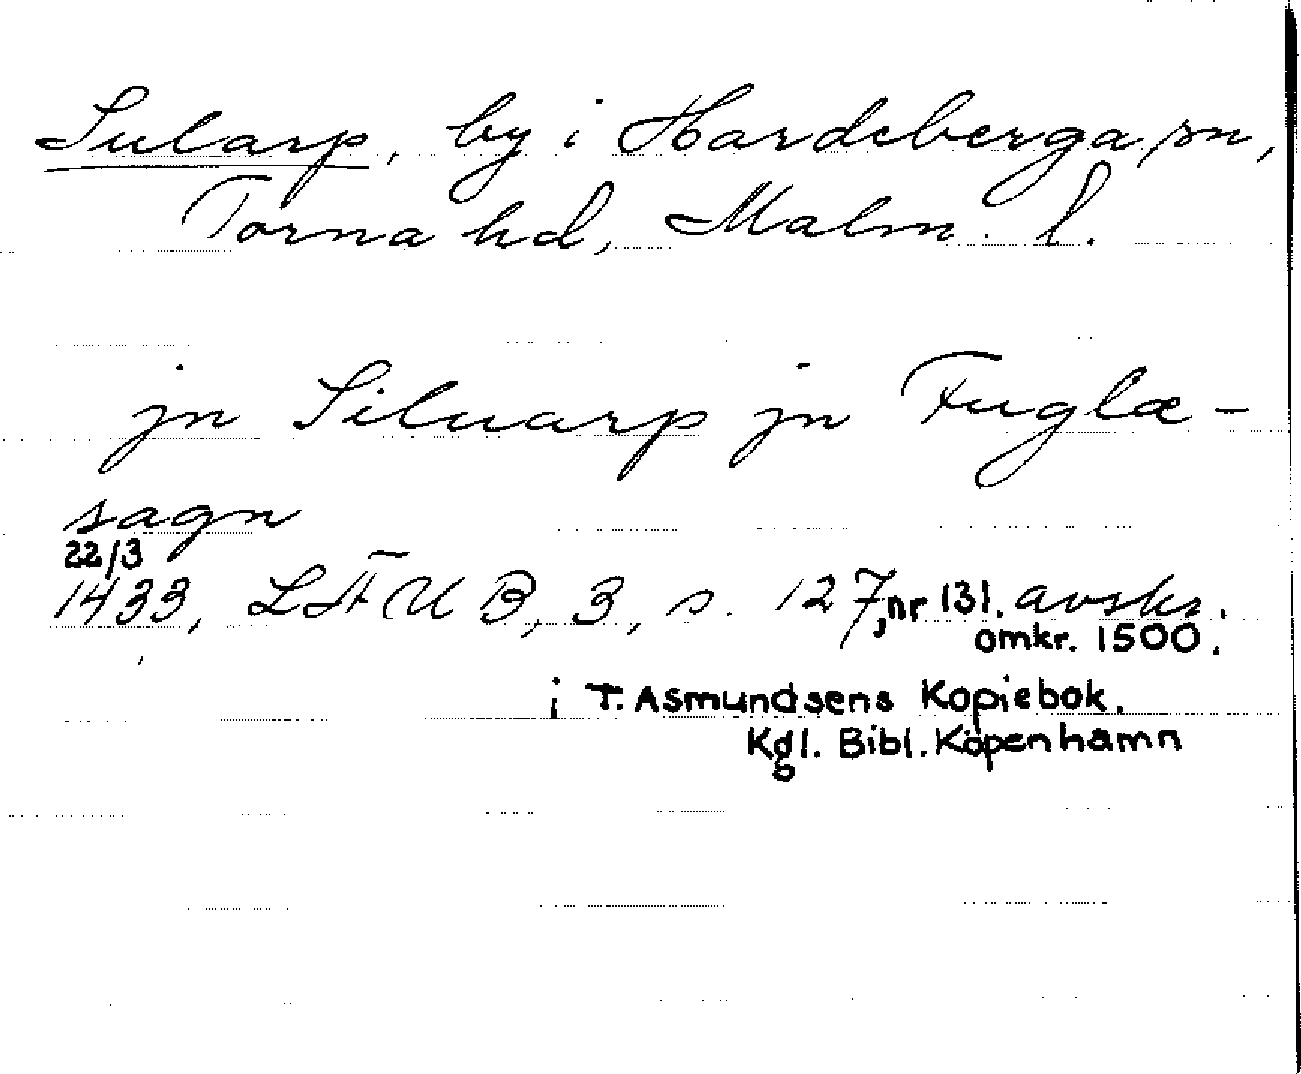 Sularp, by i Hardeberga sn,
Torna hd, Malm. l.
jn Siluarp jn Fuglæ-
sagn
22/3
1433, LÄUB, 3, s. 127, nr 131. avskr.
omkr. 1500.
i T. Asmundsens Kopiebok.
Kgl. Bibl. Köpenhamn